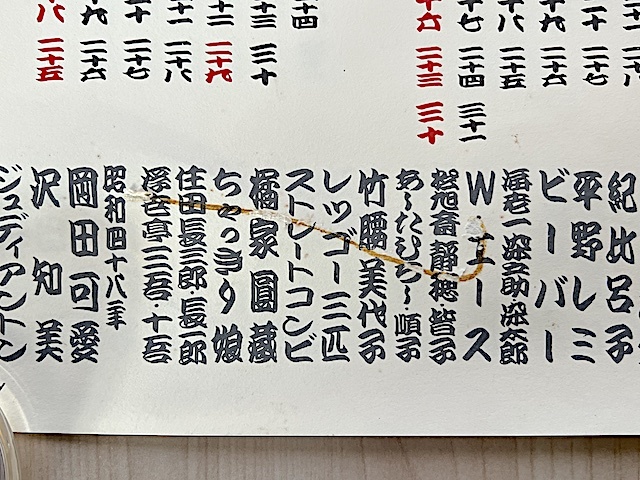 二十一 二十八
二十 二十七
十九 二十六
十八 二十五
十七 二十四 三十一
十六 二十三 三十
十四
十三 三十
十二 二十九
十一 二十八
二十 二十七
十九 二十六
十八 二十五
紀比呂子
平野レミ
ビーバー
海老一染之助・染太郎
W・エース
松旭斎静穂・皆子
あしたひろし・順子
竹腰美代子
レツゴー三匹
ストレートコンビ
橘家圓蔵
ちゃっきり娘
住田長三郎・長一郎
浮世亭三吾・十吾
昭和四十八年
岡田可愛
沢知美
ジュディアントン